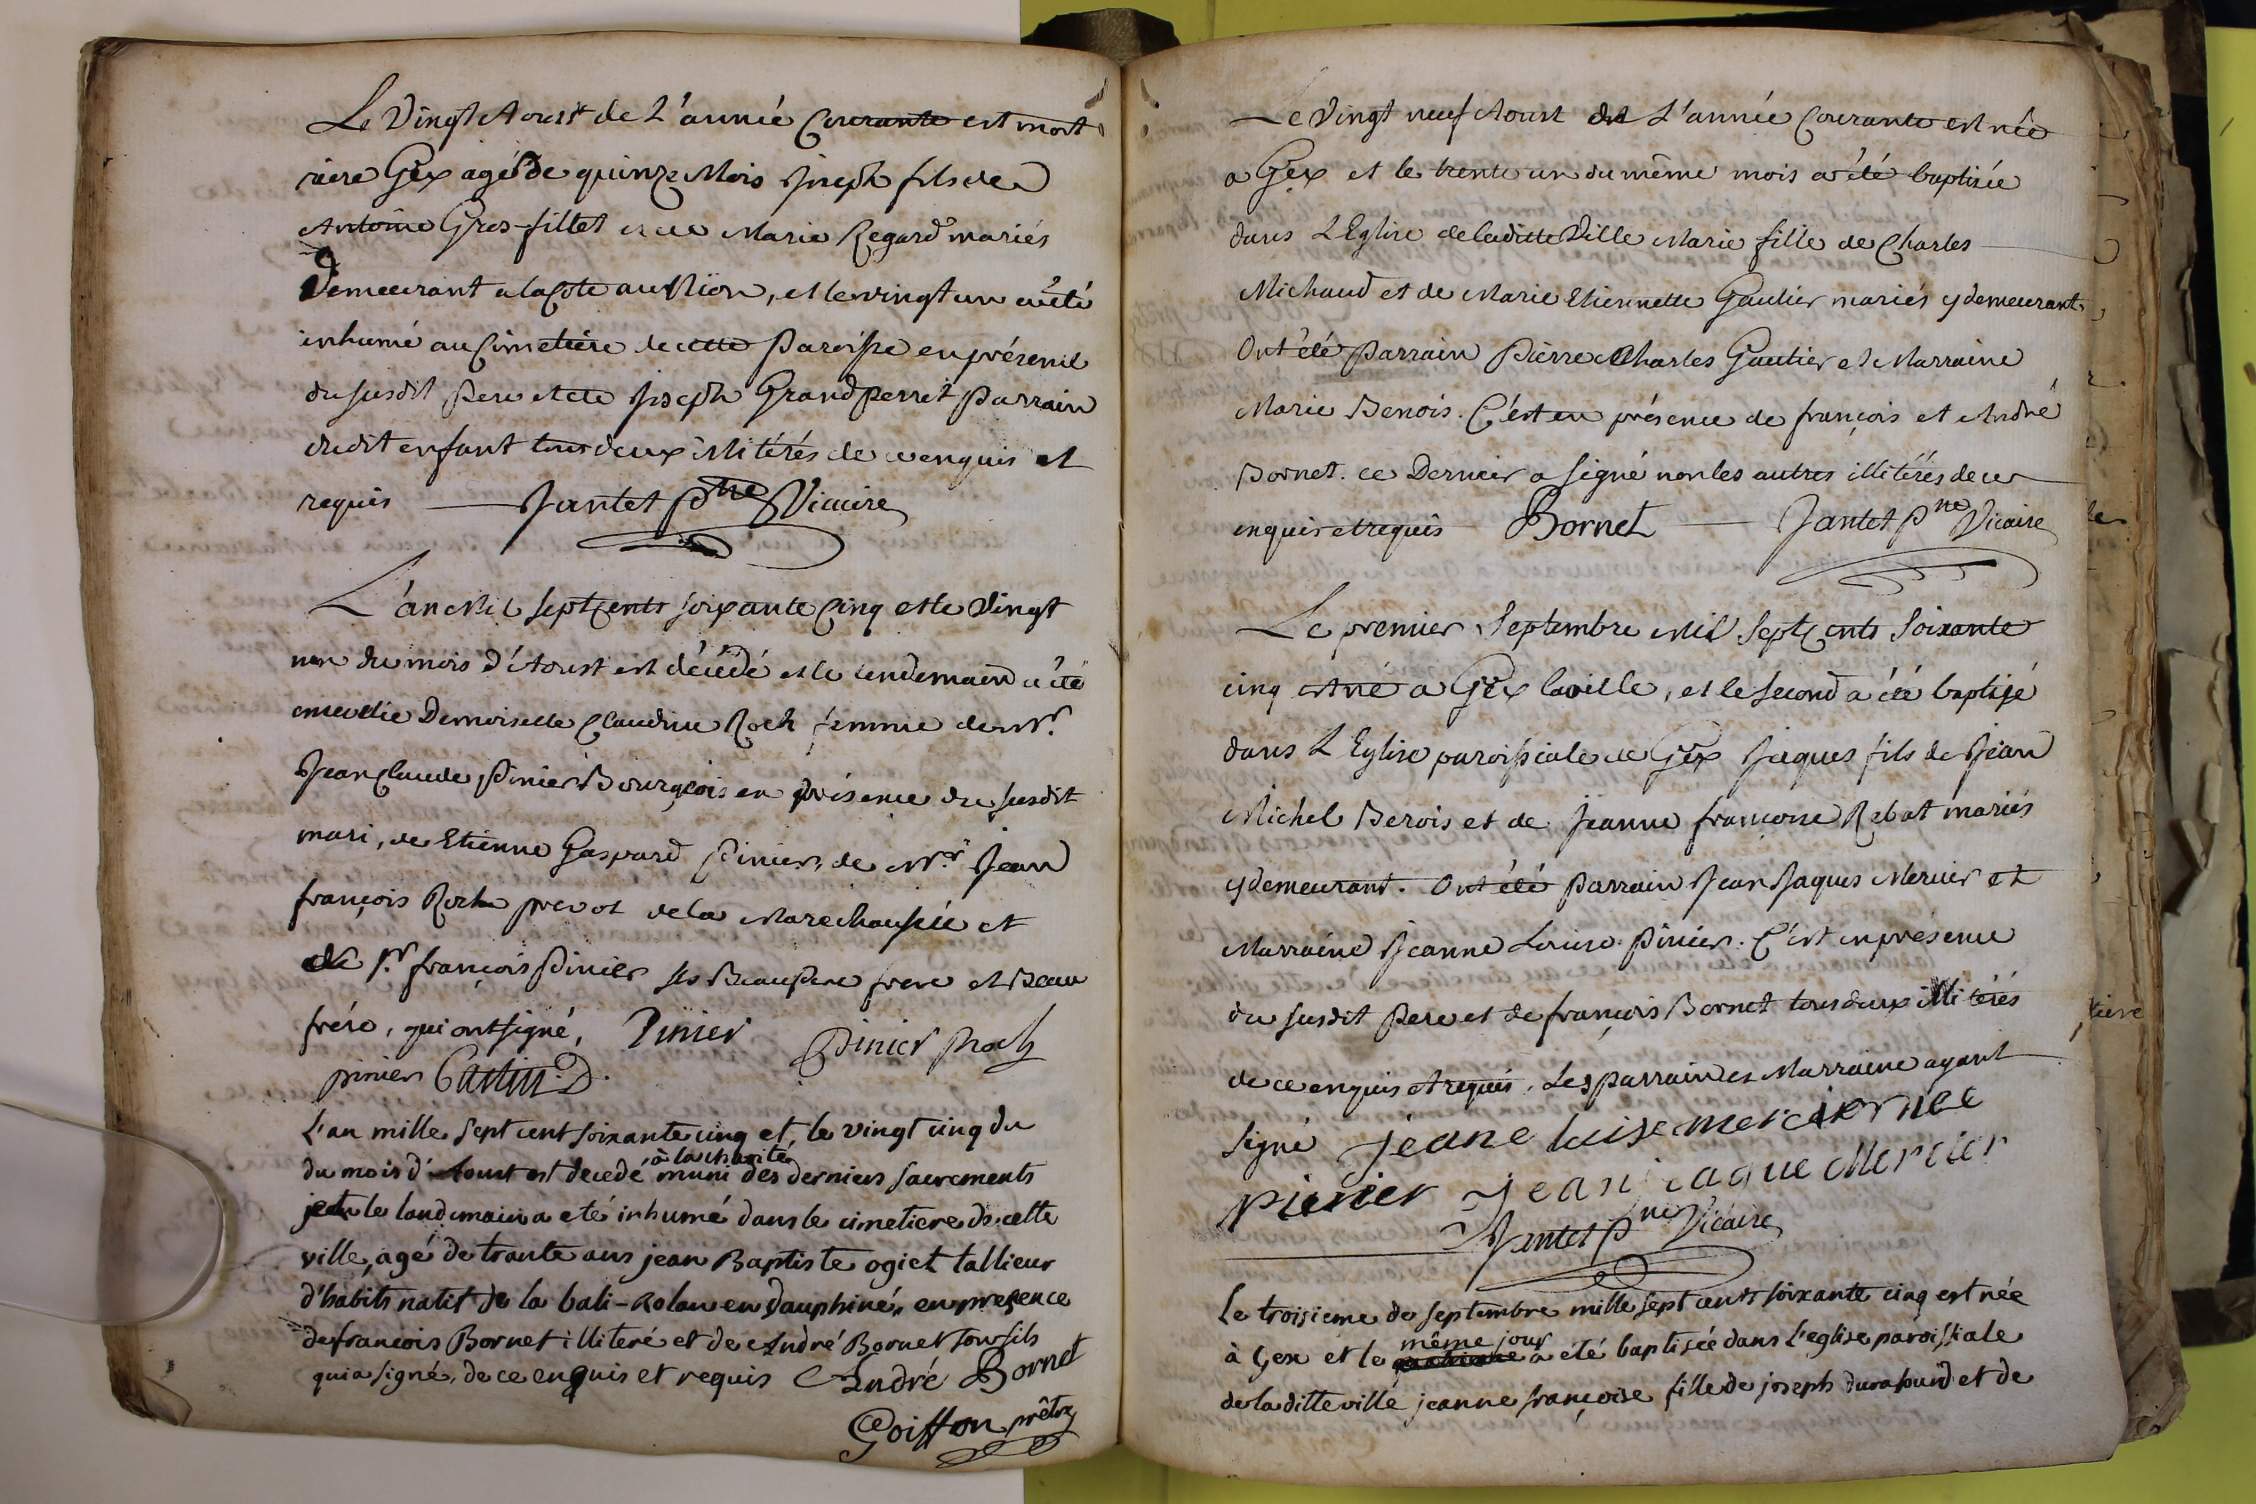 Le Vingt Aoust de L'année Courante est mort
riere Gex agé de quinze Mois Joseph fils de
Antoine Gros-fillet et de Marie Regard mariés
Demeurant a la Cote au Nion, et le vingt un a été
inhumé au Cimetiere de cette Paroisse en présence
du susdit Pere et de Joseph Grandperret Parrain
dudit enfant tous deux illitérés de ce enquis et
requis Jantet Ptre Vicaire
L'an Mil Sept Cents Soixante Cinq et le Vingt
un du mois d'Aoust est décédé et le lendemain a été
ensevelie Demoiselle Claudine Roch femme de Mr.
Jean Claude Pinier Bourgeois en présence du susdit
mari, de Etienne Gaspard Pinier, de Mr. Jean
françois Roch prevot de la Marechaussée et
de Sr. françois Pinier ses Beaupere frere et Beau
frére, qui ont signé, Pinier Pinier Roch
pinier
L'an mille sept cent soixante cinq et, le vingt cinq du
du mois d'Aoust est decedé à la charité muni des derniers sacrements
et le landemain a eté inhumé dans le cimetiere de cette
ville, agé de trante ans jean Baptiste ogiet tallieur
d'habits natif de la bati-Rolan en Dauphiné, en presence
de françois Bornet illiteré et de André Bornet son fils
qui a signé, de ce enquis et requis André Bornet
Goiffon prêtre
Le Vingt neuf Aoust de L'année Courante est née
a Gex et le trente un du même mois a été baptisée
dans L'Eglise de laditte Ville Marie fille de Charles
Michaud et de Marie Etiennette Gautier mariés y demeurant
Ont été Parrain Pierre Charles Gautier et Marraine
Marie Benois. C'est en présence de françois et André
Bornet. ce Dernier a signé non les autres illitérés de ce
enquis et requis Bornet Jantet Ptre Vicaire
Le premier Septembre Mil Sept Cents Soixante
cinq est né a Gex la ville, et le Second a été baptisé
dans L'Eglise paroissiale de Gex Jaques fils de Jean
Michel Benois et de Jeanne françoise Rebat mariés
y demeurant. Ont été Parrain Jean Jaques Mercier et
Marraine Jeanne Louise Pinier. C'est en présence
du susdit Pere et de françois Bornet tous deux illitérés
de ce enquis et requis. Les parrain et Marraine ayant
signé jeane luise mercier née
pinier Jean jaque Mercier
Jantet Ptre Vicaire
Le troisieme de septembre mille sept cents soixante cinq est née
à Gex et le même jour a été baptisée dans l'eglise paroissiale
de la ditte ville jeanne françoise fille de joseph durafourd et de